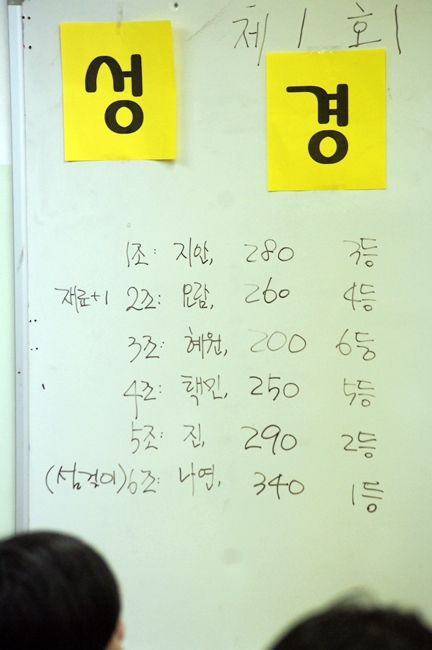 제 1 회
성 경
1조: 지안, 280 3등
재균+1 2조: 요람, 260 4등
3조: 혜원, 200 6등
4조: 핵민, 250 5등
5조: 진, 290 2등
(섬김이) 6조: 나연, 340 1등